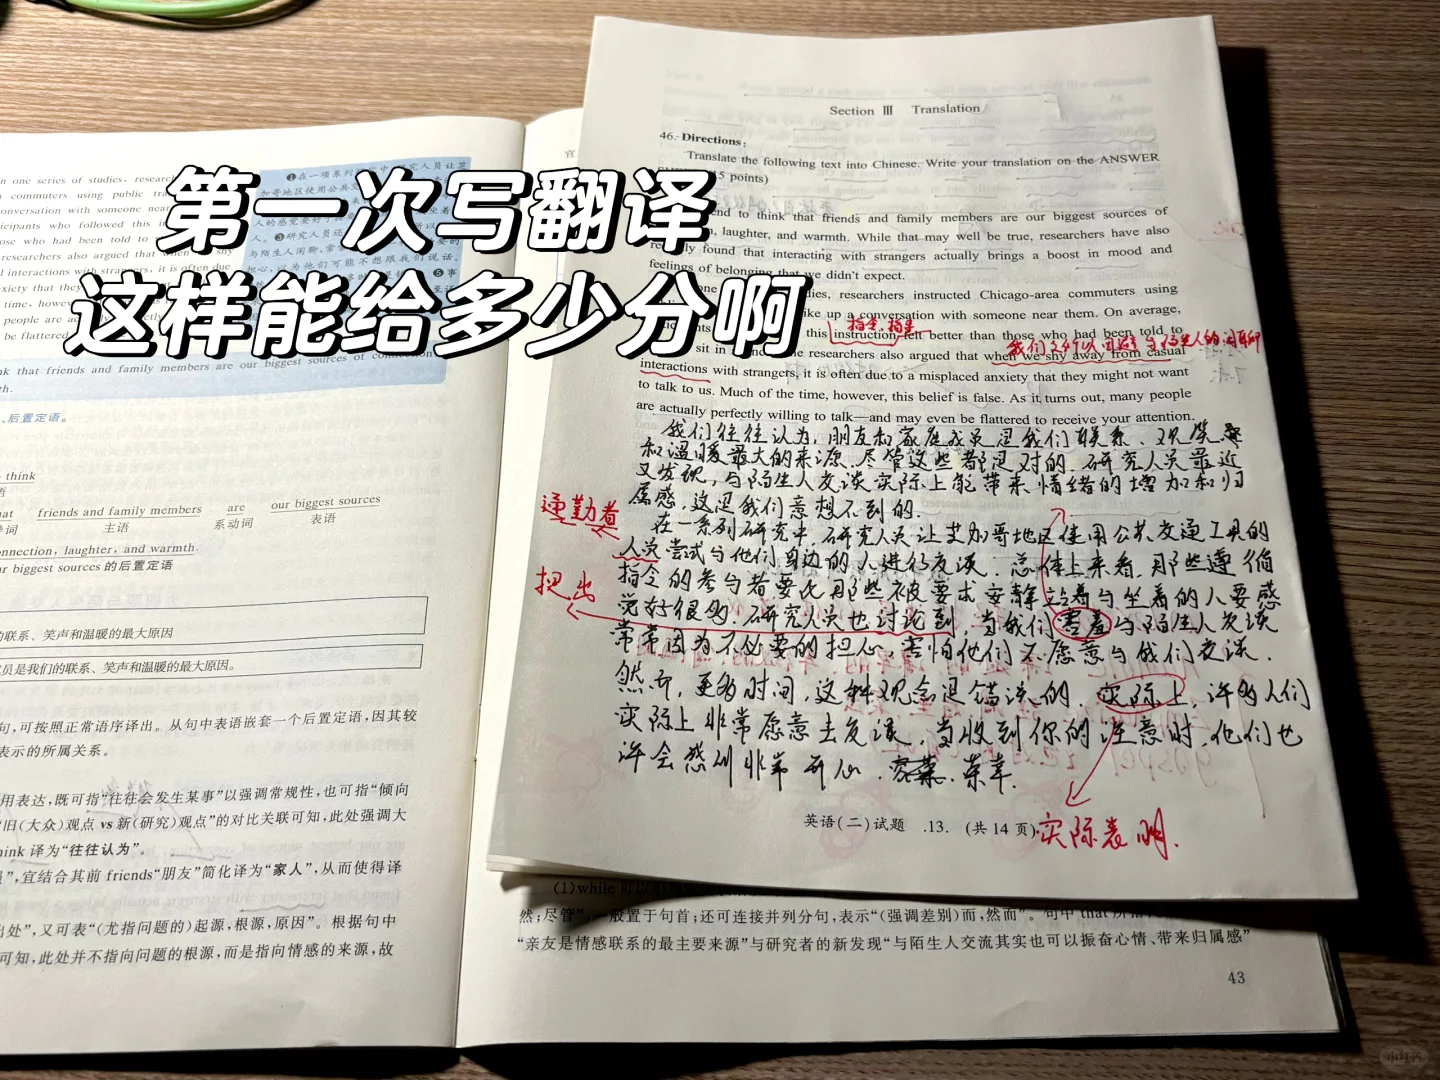 第一次写翻译
这样能给多少分啊
n one series of studies, resear
commuters using public tra
onversation with someone near
cipants who followed this in
ose who had been told to
researchers also argued that when
l interactions with strangers, it is often due
xiety that they
time, howev
people are
be flattered
nk that friends and family members are our biggest sources of connection
th.
、后置定语。
think
friends and family members are our biggest sources
主语 系动词 表语
onnection, laughter, and warmth.
r biggest sources 的后置定语
的联系、笑声和温暖的最大原因
成员是我们的联系、笑声和温暖的最大原因。
句,可按照正常语序译出。从句中表语嵌套一个后置定语,因其较
表示的所属关系。
用表达,既可指“往往会发生某事”以强调常规性,也可指“倾向
“旧(大众)观点 vs 新(研究)观点”的对比关联可知,此处强调大
hink 译为“往往认为”。
”,宜结合其前 friends“朋友”简化译为“家人”,从而使得译
出处”,又可表“(尤指问题的)起源,根源,原因”。根据句中
可知,此处并不指向问题的根源,而是指向情感的来源,故
❶在一项系列
Section Ⅲ Translation
46. Directions:
Translate the following text into Chinese. Write your translation on the ANSWER
5 points)
end to think that friends and family members are our biggest sources of
n, laughter, and warmth. While that may well be true, researchers have also
recently found that interacting with strangers actually brings a boost in mood and
feelings of belonging that we didn't expect.
one dies, researchers instructed Chicago-area commuters using
ike up a conversation with someone near them. On average,
this instruction felt better than those who had been told to
sit in researchers also argued that when we shy away from casual
interactions with strangers, it is often due to a misplaced anxiety that they might not want
to talk to us. Much of the time, however, this belief is false. As it turns out, many people
are actually perfectly willing to talk—and may even be flattered to receive your attention.
指令,指导
我们往往认为,朋友和家庭成员是我们联系、欢笑
和温暖最大的来源.尽管这些都是对的.研究人员最近
又发现,与陌生人交谈实际上能带来情绪的增加和归
属感,这是我们意想不到的.
在一系列研究中,研究人员让芝加哥地区使用公共交通工具的
人员尝试与他们身边的人进行交谈.总体上来看,那些遵循
指令的参与者要比那些被要求安静站着与坐着的人要感
觉好很多.研究人员也讨论到,当我们害羞与陌生人交谈
常常因为不必要的担心,害怕他们不愿意与我们交谈.
然而,更多时间,这种观念是错误的.实际上,许多人们
实际上非常愿意去交谈,当收到你的注意时,他们也
许会感到非常开心.荣幸.
通勤者
提出
实际表明.
英语(二)试题 .13. (共14页)
(1)while
然;尽管”,一般置于句首;还可连接并列分句,表示“(强调差别)而,然而”。句中 that 所指
“亲友是情感联系的最主要来源”与研究者的新发现“与陌生人交流其实也可以振奋心情、带来归属感”
43
小红书